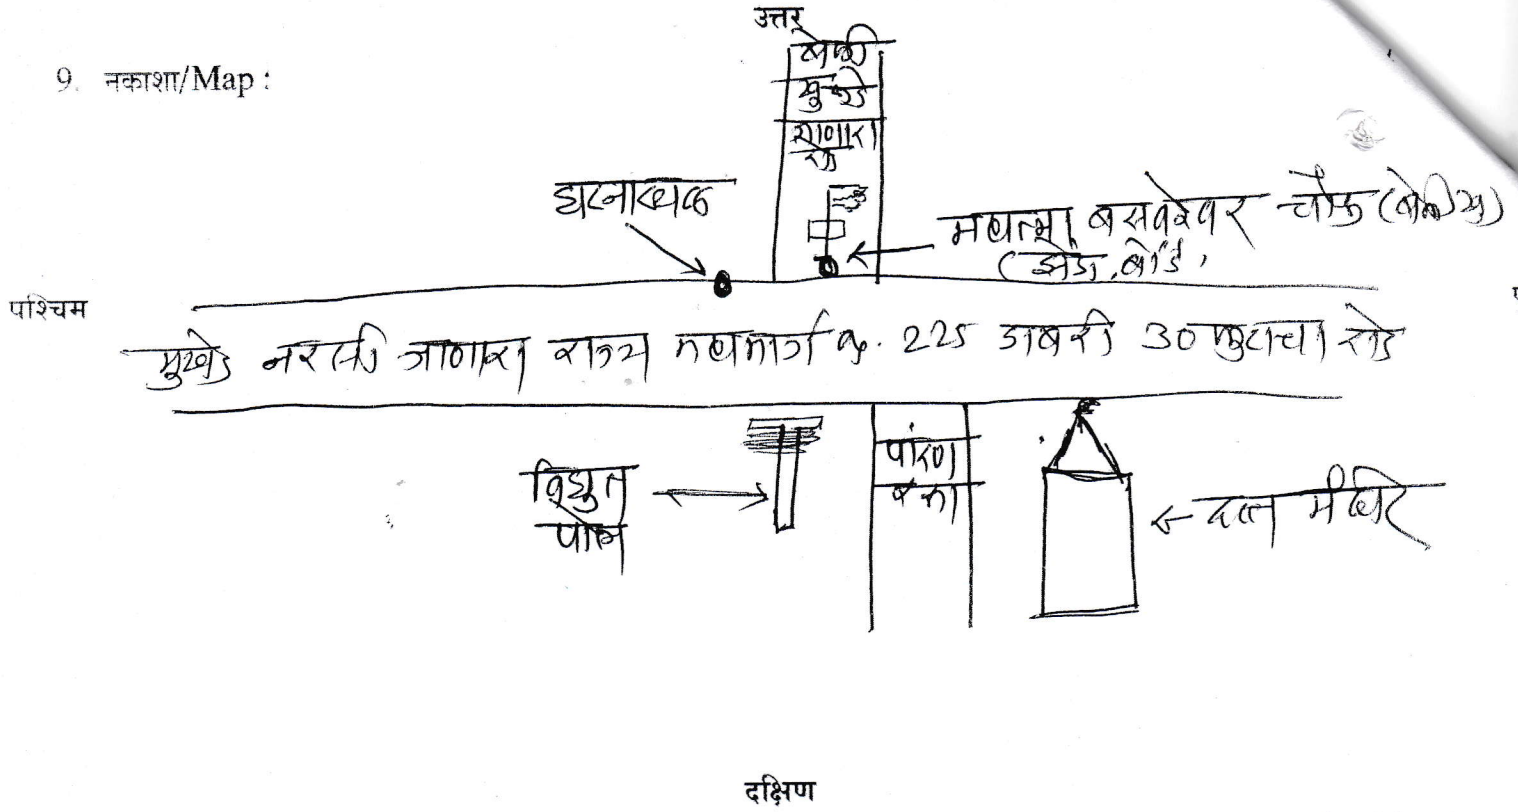 उत्तर
9. नकाशा/Map :
बेळी
खुर्द
जाणारा
रोड
घटनास्थळ
महात्मा बसवेश्वर चौक
(झेंडा, बोर्ड,
पश्चिम
मुखेड नरसी जाणारा राज्य महामार्ग क्र. 225 डांबरी 30 फुटाचा रोड
विद्युत
पोल
पांदण
दत्त मंदिर
दक्षिण